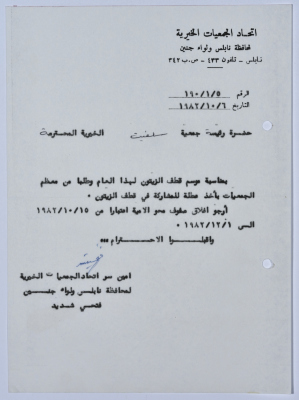 اتحاد الجمعيات الخيرية
لمحافظة نابلس ولواء جنين
نابلس - تلفون ٤٣٣ - ص.ب ٣٤٢
الرقم ١٩٠/١/٥
التاريخ ١٩٨٢/١٠/٦
حضرة رئيسة جمعية سلفيت الخيرية المحترمة
بمناسبة موسم قطف الزيتون لهذا العام وطلبا من معظم
الجمعيات بأخذ عطلة للمشاركة في قطف الزيتون ٠
أرجو اغلاق صفوف محو الامية اعتبارا من ١٩٨٢/١٠/١٥
الى ١٩٨٢/١٢/١ ٠
واقبلوا الاحترام ،،،
امين سر اتحاد الجمعيات الخيرية
لمحافظة نابلس ولواء جنين
فتحي شديد